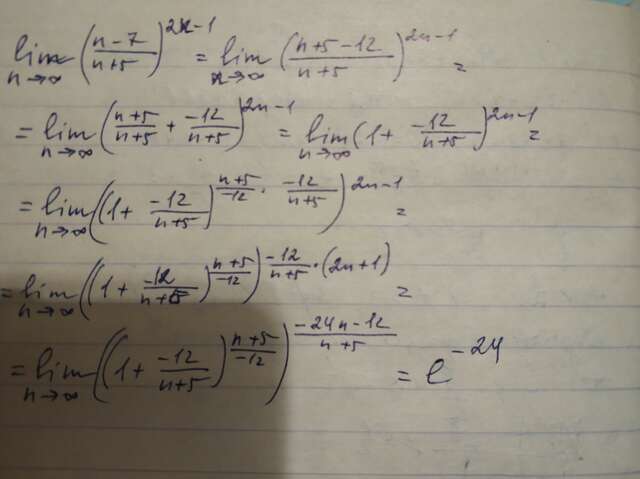 lim n→∞ ((n-7)/(n+5))^(2n-1) = lim n→∞ ((n+5-12)/(n+5))^(2n-1) =
= lim n→∞ ((n+5)/(n+5) + (-12)/(n+5))^(2n-1) = lim n→∞ (1 + (-12)/(n+5))^(2n-1) =
= lim n→∞ ((1 + (-12)/(n+5))^((n+5)/(-12) · (-12)/(n+5)))^(2n-1) =
= lim n→∞ ((1 + (-12)/(n+5))^((n+5)/(-12)))^((-12)/(n+5) · (2n+1)) =
= lim n→∞ ((1 + (-12)/(n+5))^((n+5)/(-12)))^((-24n-12)/(n+5)) = e^(-24)